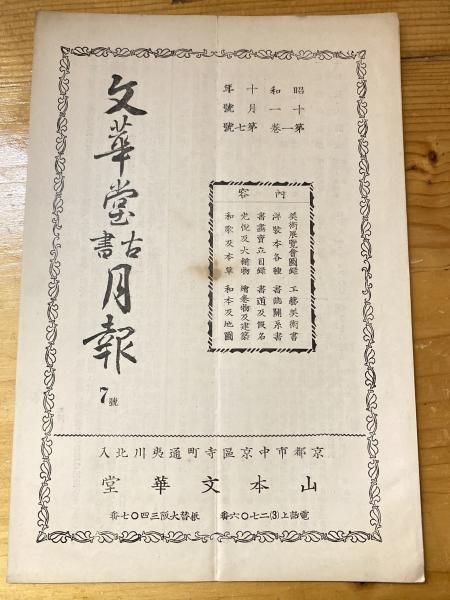 昭和十年
十一月號
第一卷第七號
內容
美術展覽會圖錄 工藝美術書
洋裝本各種 書誌關系書
書畫賣立目錄 書道及假名
光悅及大輔物 繪卷物及建築
和歌及本草 和本及地圖
文華堂古書月報
7號
京都市中京區寺町通夷川北入
山本文華堂
電話上(3)二七〇六番 振替大阪三四〇七番